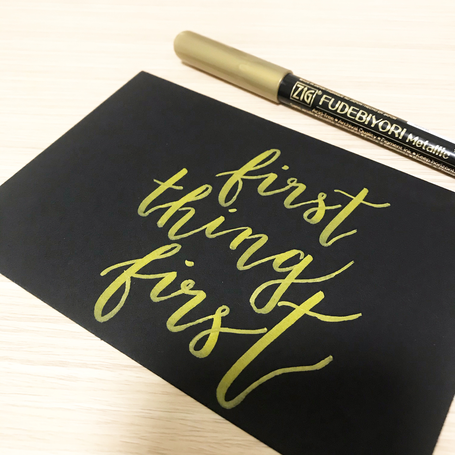 ZIG® FUDEBIYORI Metallic
first
thing
first